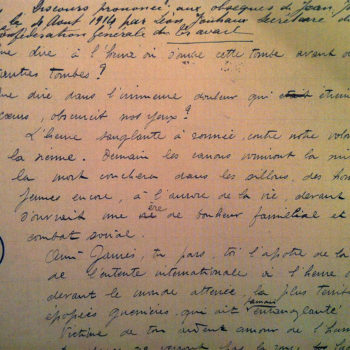 Discours prononcé, aux obsèques de Jean J
le 4 Août 1914 par Léon Jouhaux Secrétaire d
Confédération générale du Travail
ue dire à l'heure où s'ouvre cette tombe avant d
autres tombes?
ue dire dans l'immense douleur qui étrein
cœurs, obscurcit nos yeux?
L'heure sanglante a sonnée, contre notre volon
la sienne. Demain les canons vomiront la mi
la mort couchera dans les sillons, des hom
jeunes encore, à l'aurore de la vie, devant
s'ouvrait une ère de bonheur familial et
combat social.
Ami Jaurès, tu pars, toi l'apôtre de la
de l'entente internationale à l'heure o
devant le monde atterré, la plus terrib
épopées guerrières, qui ait jamais ensanglanté
Victime de ton ardent amour de l'hum